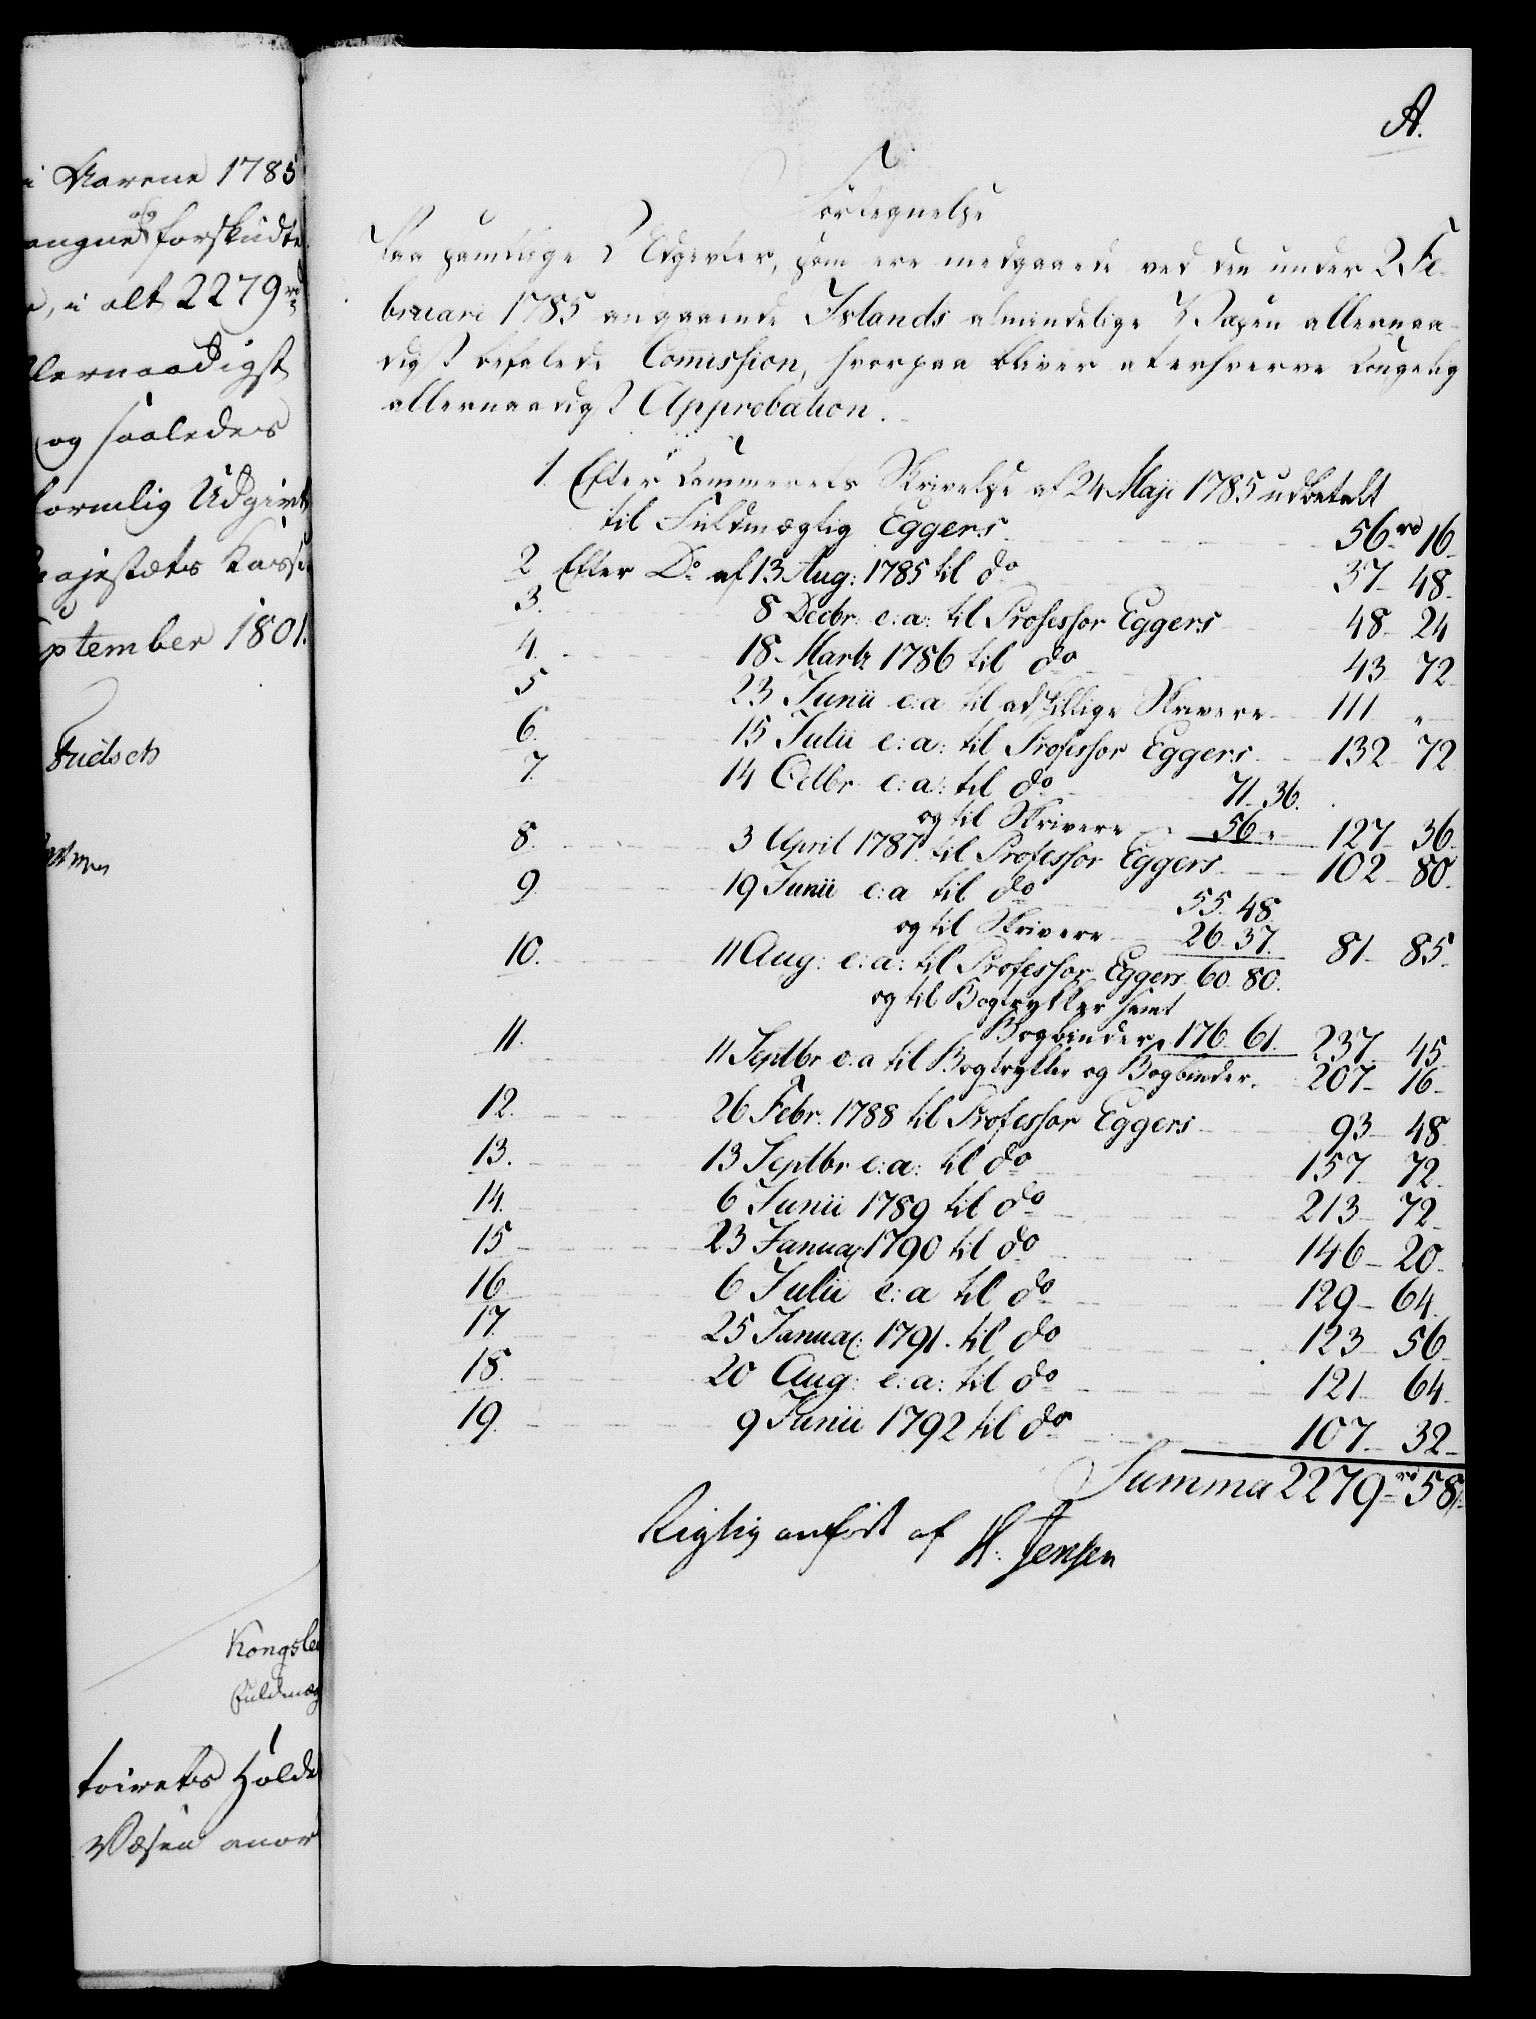 i Aarene 1785
angne og forskudte
, i alt 2279 rd
llernaadigst
og saaledes
formlig Udgivt
Majestæts Kasse
September 1801.
Fridsch
Kongsle
Fuldmæg
toirets Holde
Væsen anor
A.
Fortegnelse
Paa samtlige Udgivter, som ere medgaaede ved den under 2 Fe-
bruari 1785 angaaende Islands almindelige Væsen allernaa-
digst befalede Commission, hvorpaa bliver at erhverve Kongelig
allernaadigst Approbation.
1. Efter Kammerets Skrivelse af 24 Maji 1785 udbetalt
til Fuldmægtig Eggers 56 rd 16
2 Efter Do af 13 Aug: 1785 til do 37 48
3. 8 Decbr. e:a: til Professor Eggers 48 24
4. 18 Martz 1786 til do 43 72
5 23 Junii e:a til adskillige Skrivere 111 "
6. 15 Julii e:a: til Professor Eggers 132 72
7. 14 Octbr e:a: til do 71 36.
og til Skrivere 56 " 127 36
8. 3 April 1787 til Professor Eggers 102 80.
9. 19 Junii e:a til do 55 48
og til Skrivere 26 37. 81 85
10. 11 Aug: e:a: til Professor Eggers 60. 80.
og til Bogtrykker samt
Bogbinder 176 61. 237 45
11. 11 Septbr e:a til Bogtrykker og Bogbinder. 207 16
12. 26 Febr. 1788 til Professor Eggers 93 48
13. 13 Septbr e:a: til do 157 72
14. 6 Junii 1789 til do 213 72
15 23 Januar 1790 til do 146 20
16 6 Julii e:a til do 129 64
17. 25 Januar: 1791. til do 123 56
18. 20 Aug: e:a: til do 121 64
19. 9 Junii 1792 til do 107 32
Summa 2279 rd 58
Rigtig anført af H: Jensen